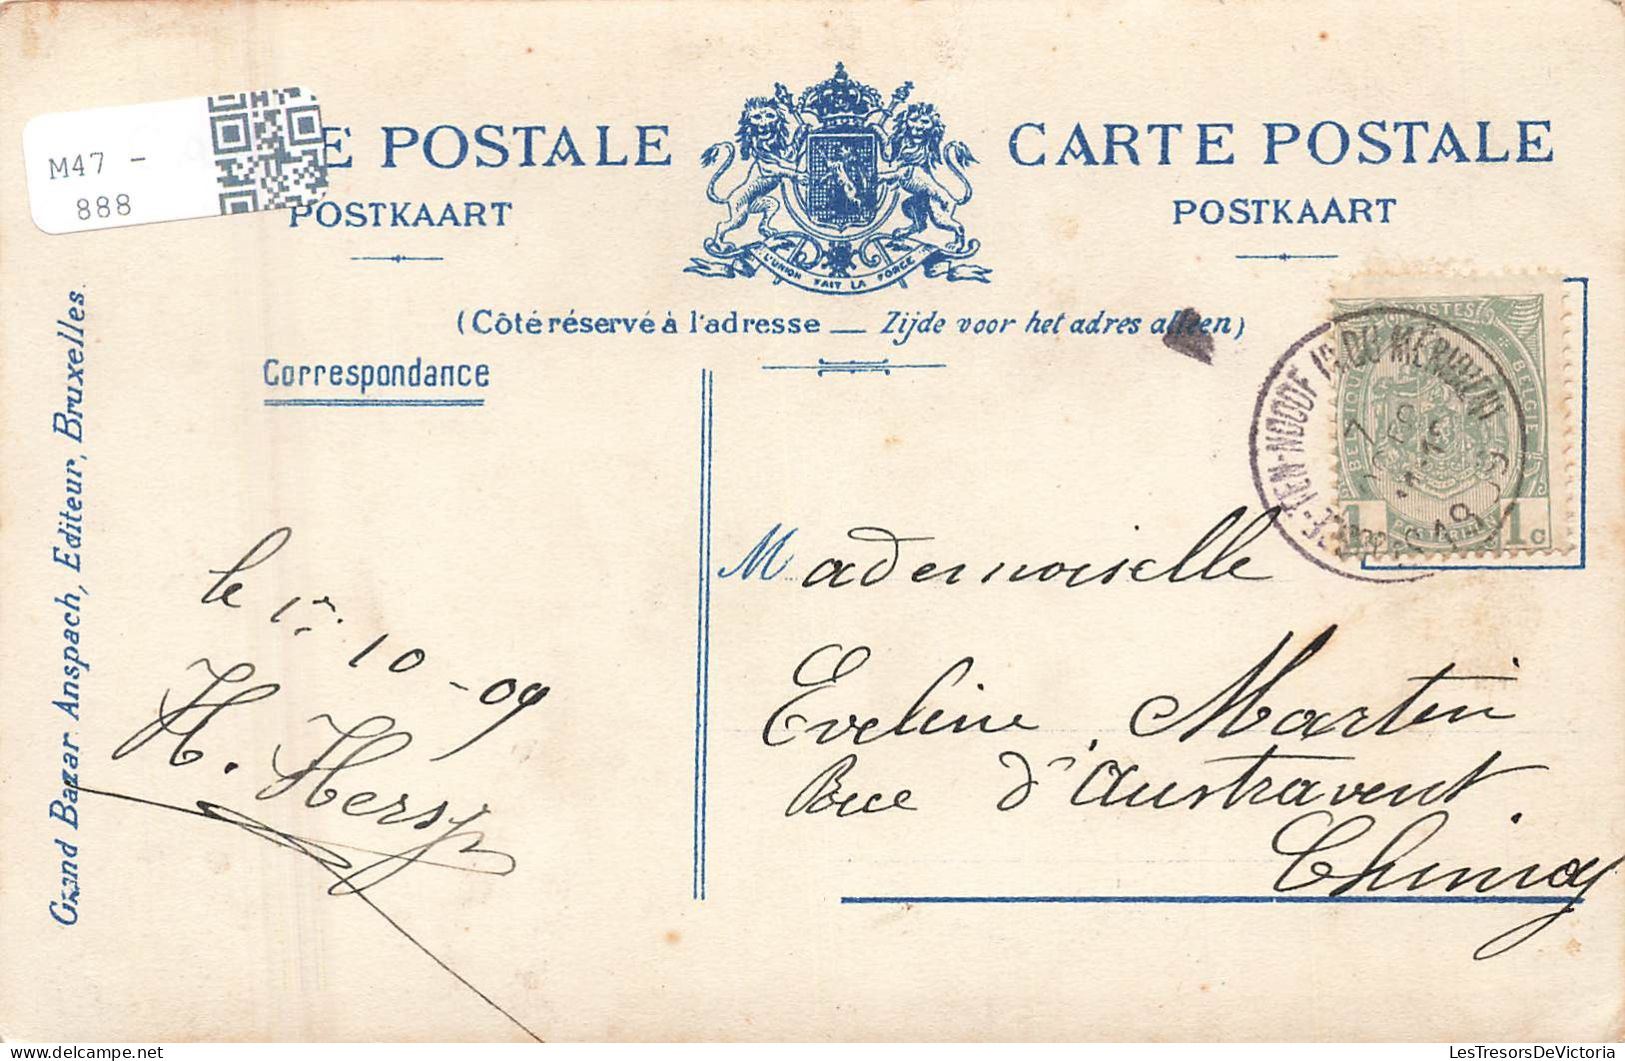 M47 -
888
E POSTALE
POSTKAART
CARTE POSTALE
POSTKAART
L'UNION FAIT LA FORCE
(Côté réservé à l'adresse — Zijde voor het adres alleen)
Correspondance
Grand Bazar Anspach, Editeur, Bruxelles.
POSTES
BELGIQUE
BELGIE
1 1c
TEN-NOODE (R. DU MÉRIDIEN)
le 1er 10-09
H. Hersy
Mademoiselle
Eveline Martin
Rue d'Austravent.
Chimay
LesTresorsDeVictoria